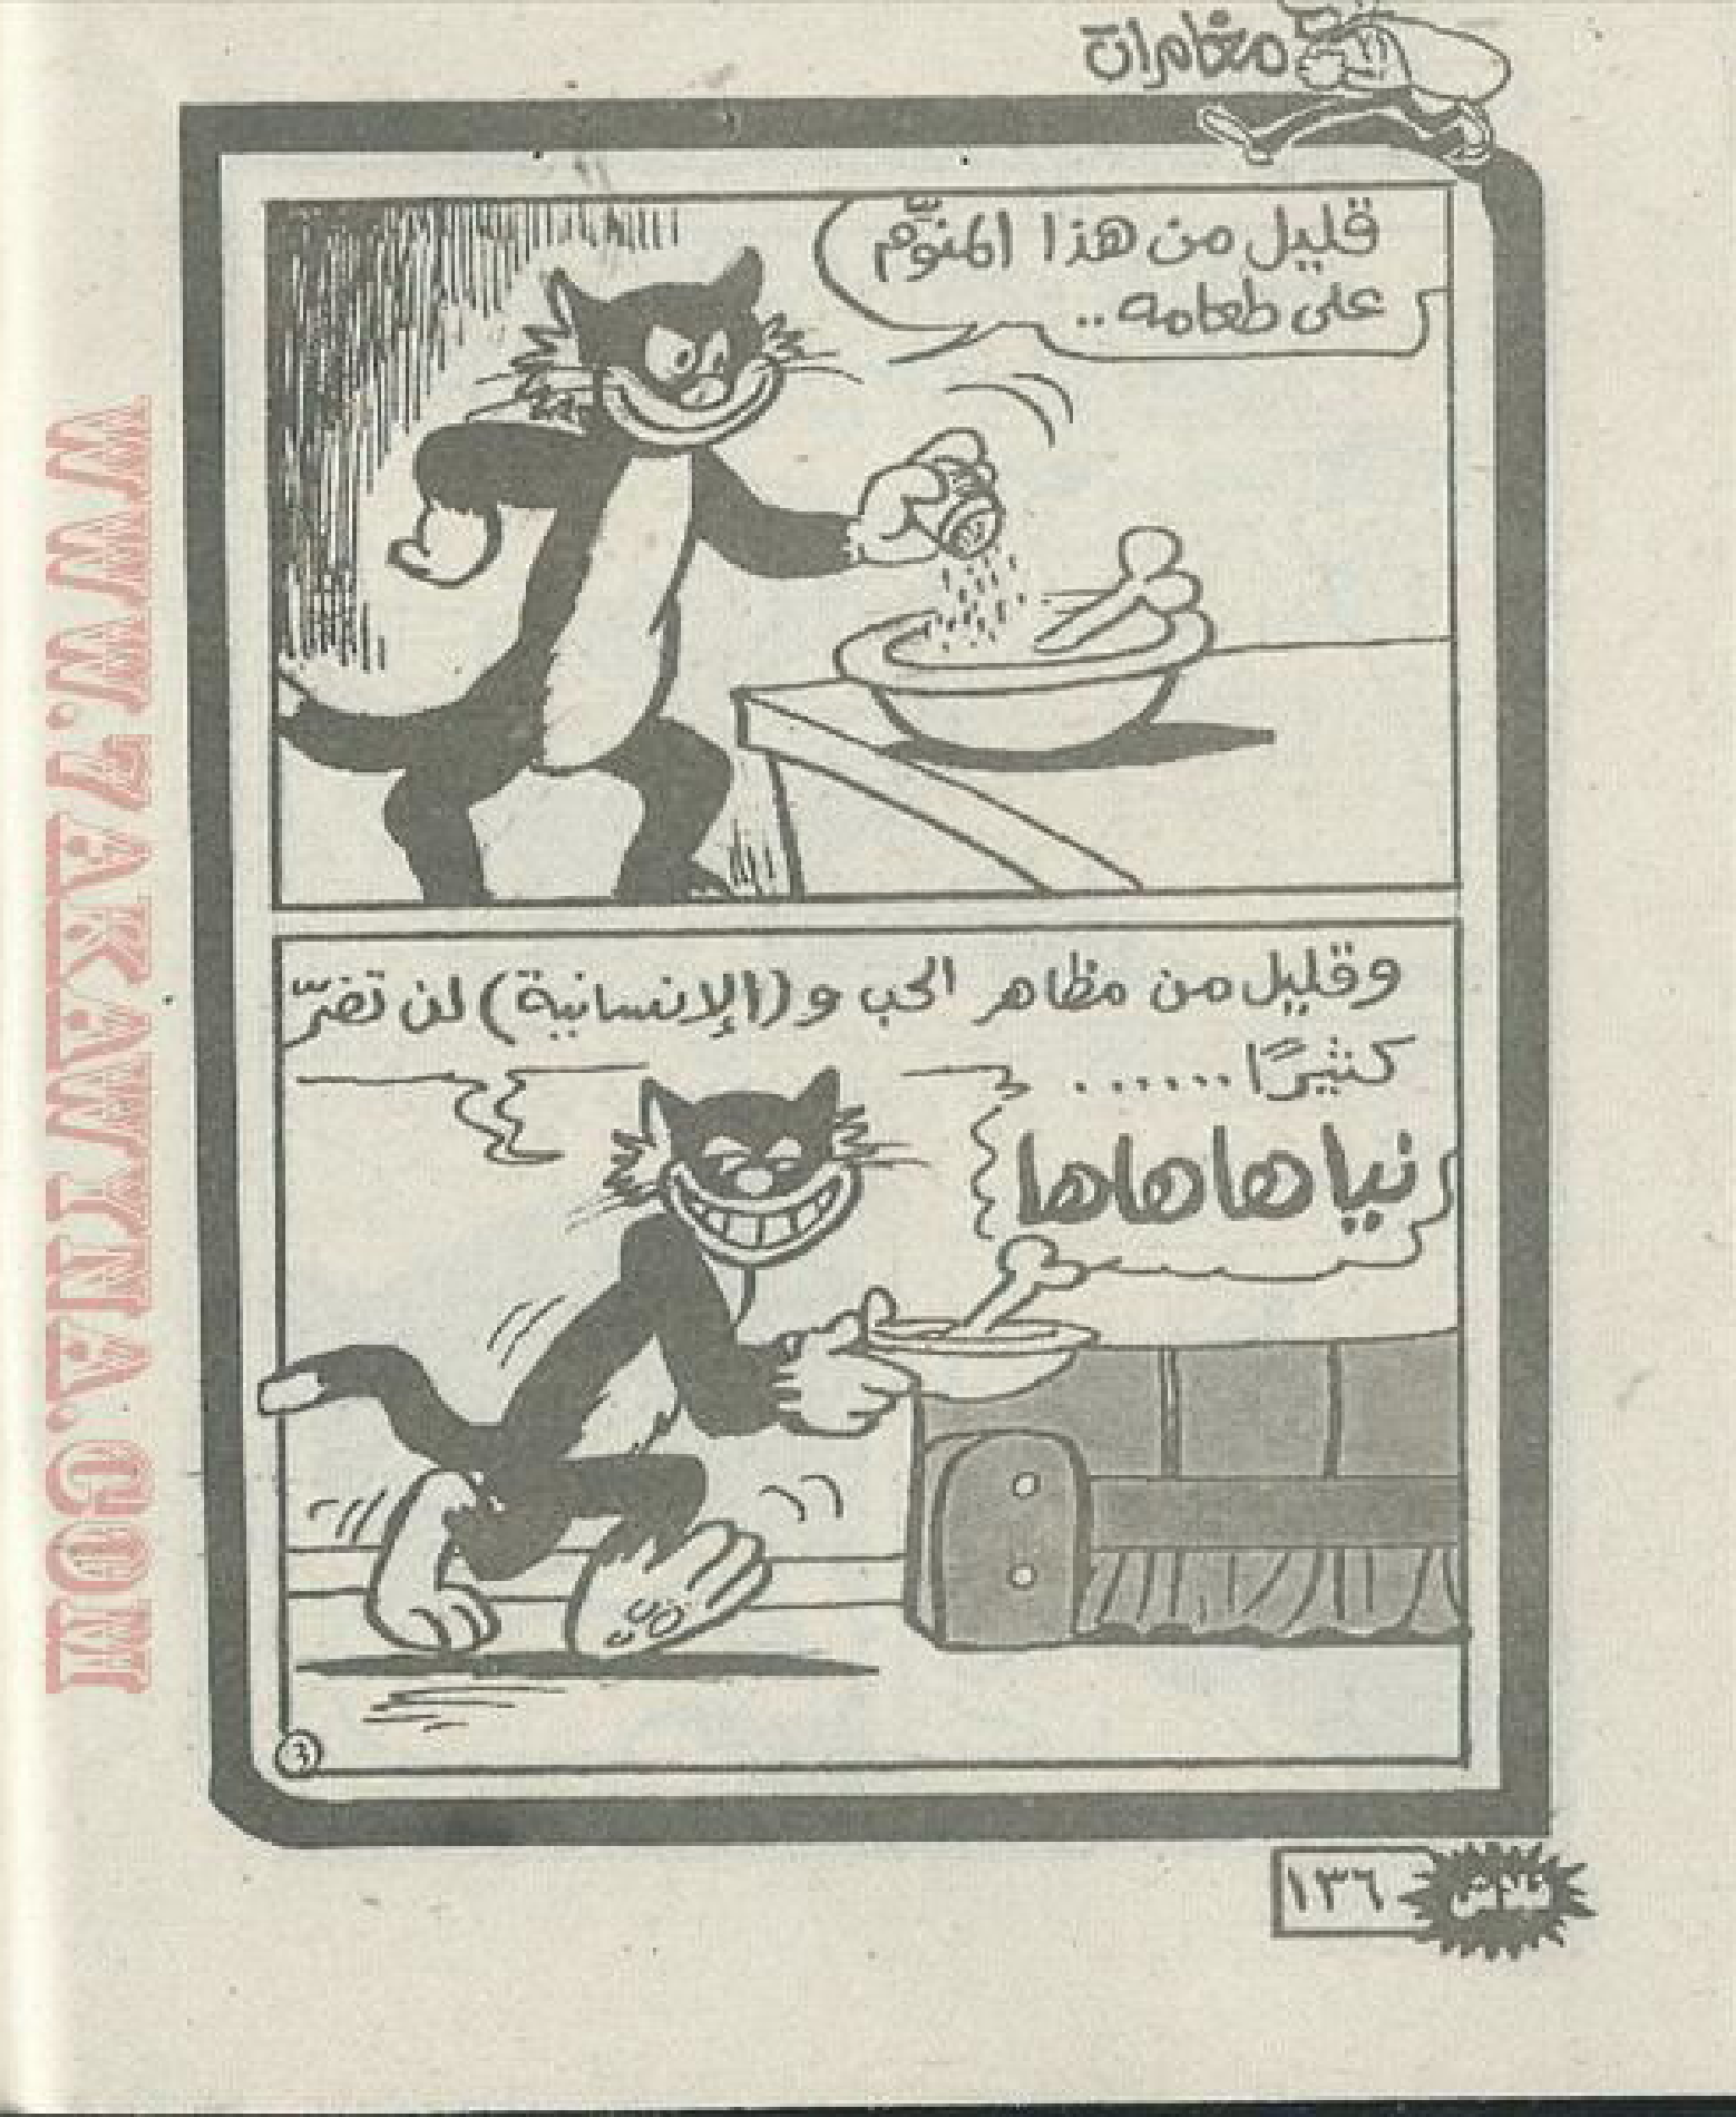 مغامرات
قليل من هذا المنوّم
على طعامه..
وقليل من مظاهر الحب و(الإنسانية) لن تضرّ
كثيرًا.......
نياهاهاها
٣
فلاش
١٣٦
WWW.7AKAWITNA.COM